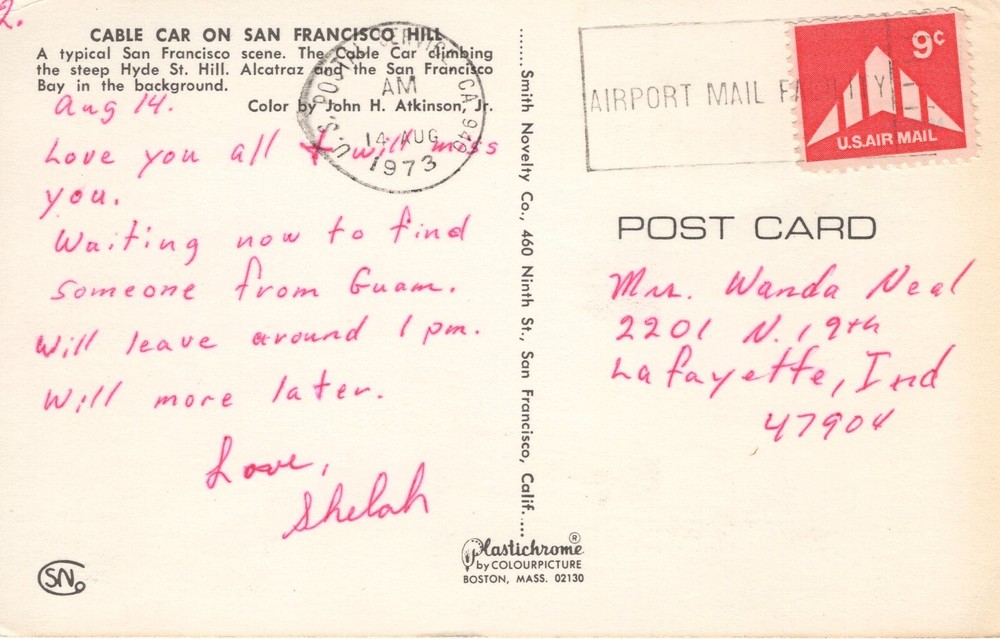 2.
CABLE CAR ON SAN FRANCISCO HILL
A typical San Francisco scene. The Cable Car climbing
the steep Hyde St. Hill. Alcatraz and the San Francisco
Bay in the background.
Color by John H. Atkinson, Jr.
Aug 14.
Love you all & will miss
you.
Waiting now to find
someone from Guam.
Will leave around 1 pm.
Will more later.
Love,
Shelah
SN
U.S. POSTAL SERVICE CA. 940
AM
14 AUG
1973
Smith Novelty Co., 460 Ninth St., San Francisco, Calif.
Plastichrome®
by COLOURPICTURE
BOSTON, MASS. 02130
AIRPORT MAIL FACILITY
9c
U.S. AIR MAIL
POST CARD
Mrs. Wanda Neal
2201 N. 19th
Lafayette, Ind
47904